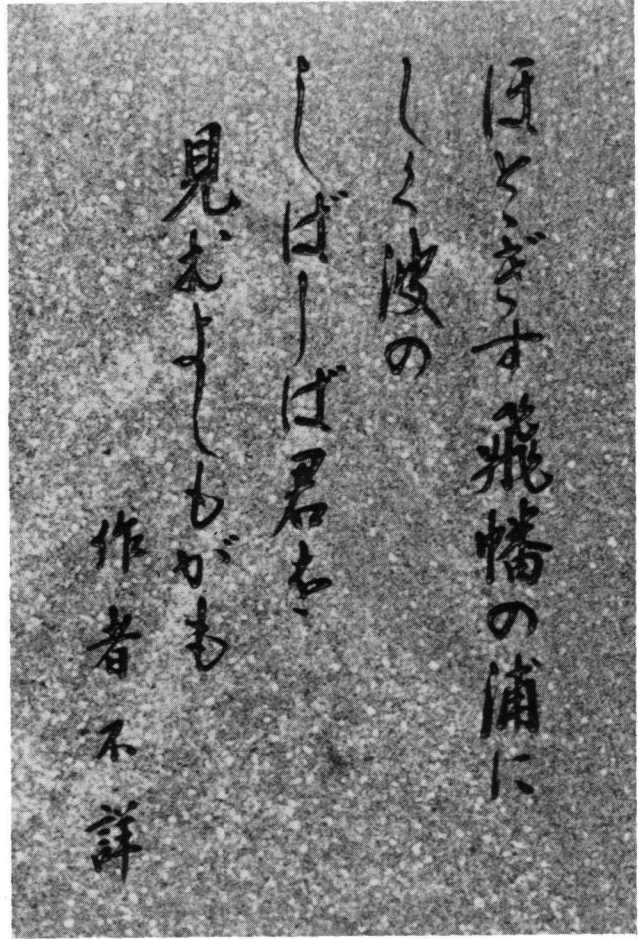 ほとゝぎす飛幡の浦に
しく波の
しばしば君を
見むよしもがも
作者不詳